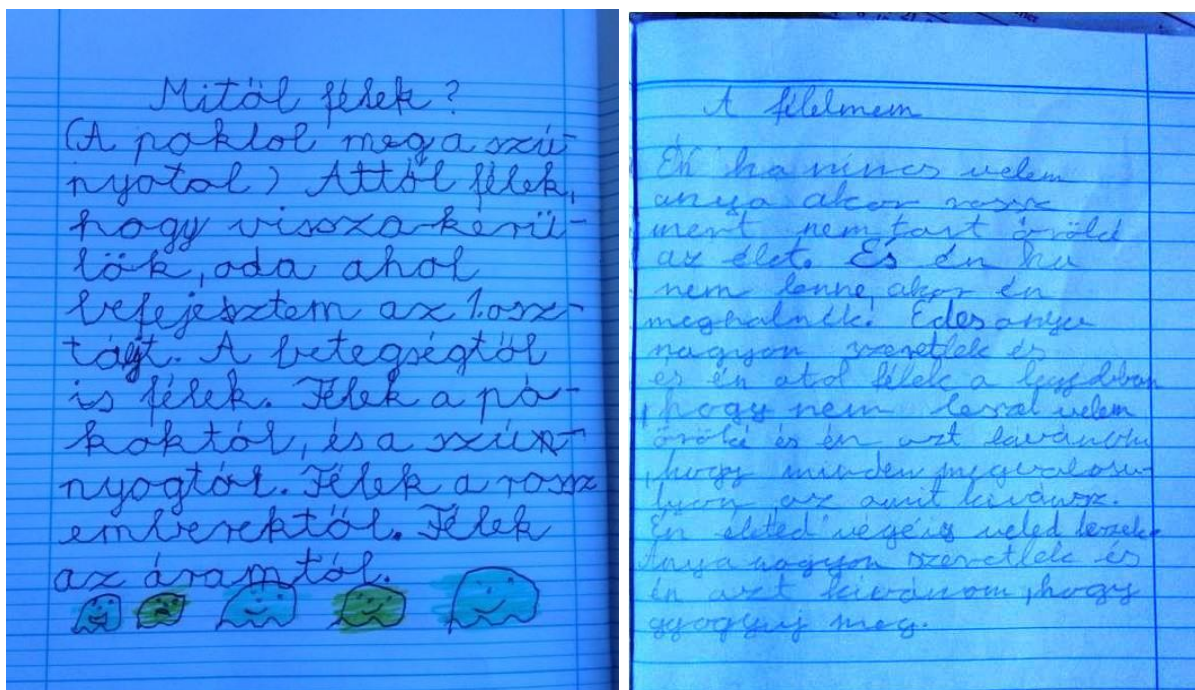 Mitől félek?
(A poktol meg a szú-
nyotol) Attól félek,
hogy visszakerü-
lök, oda ahol
befejesztem az 1.osz-
tájt. A betegségtől
is félek. Félek a pó-
koktól, és a szún-
nyogtól. Félek a rossz
emberektől. Félek
az áramtól.
A félelmem
Én ha nincs velem
anya akor rossz
mert nem tart öröké
az élet. És én ha
nem lenne, akor én
meghalnék. Édes anya
nagyon szeretlek és
és én atol félek a legjobban
, hogy nem leszel velem
öröké és én azt kivánom
, hogy minden megvalosu-
lyon az amit kivánsz.
Én életed végéig veled leszek.
Anya nagyon szeretlek és
én azt kivánom, hogy
gyogyuj meg.